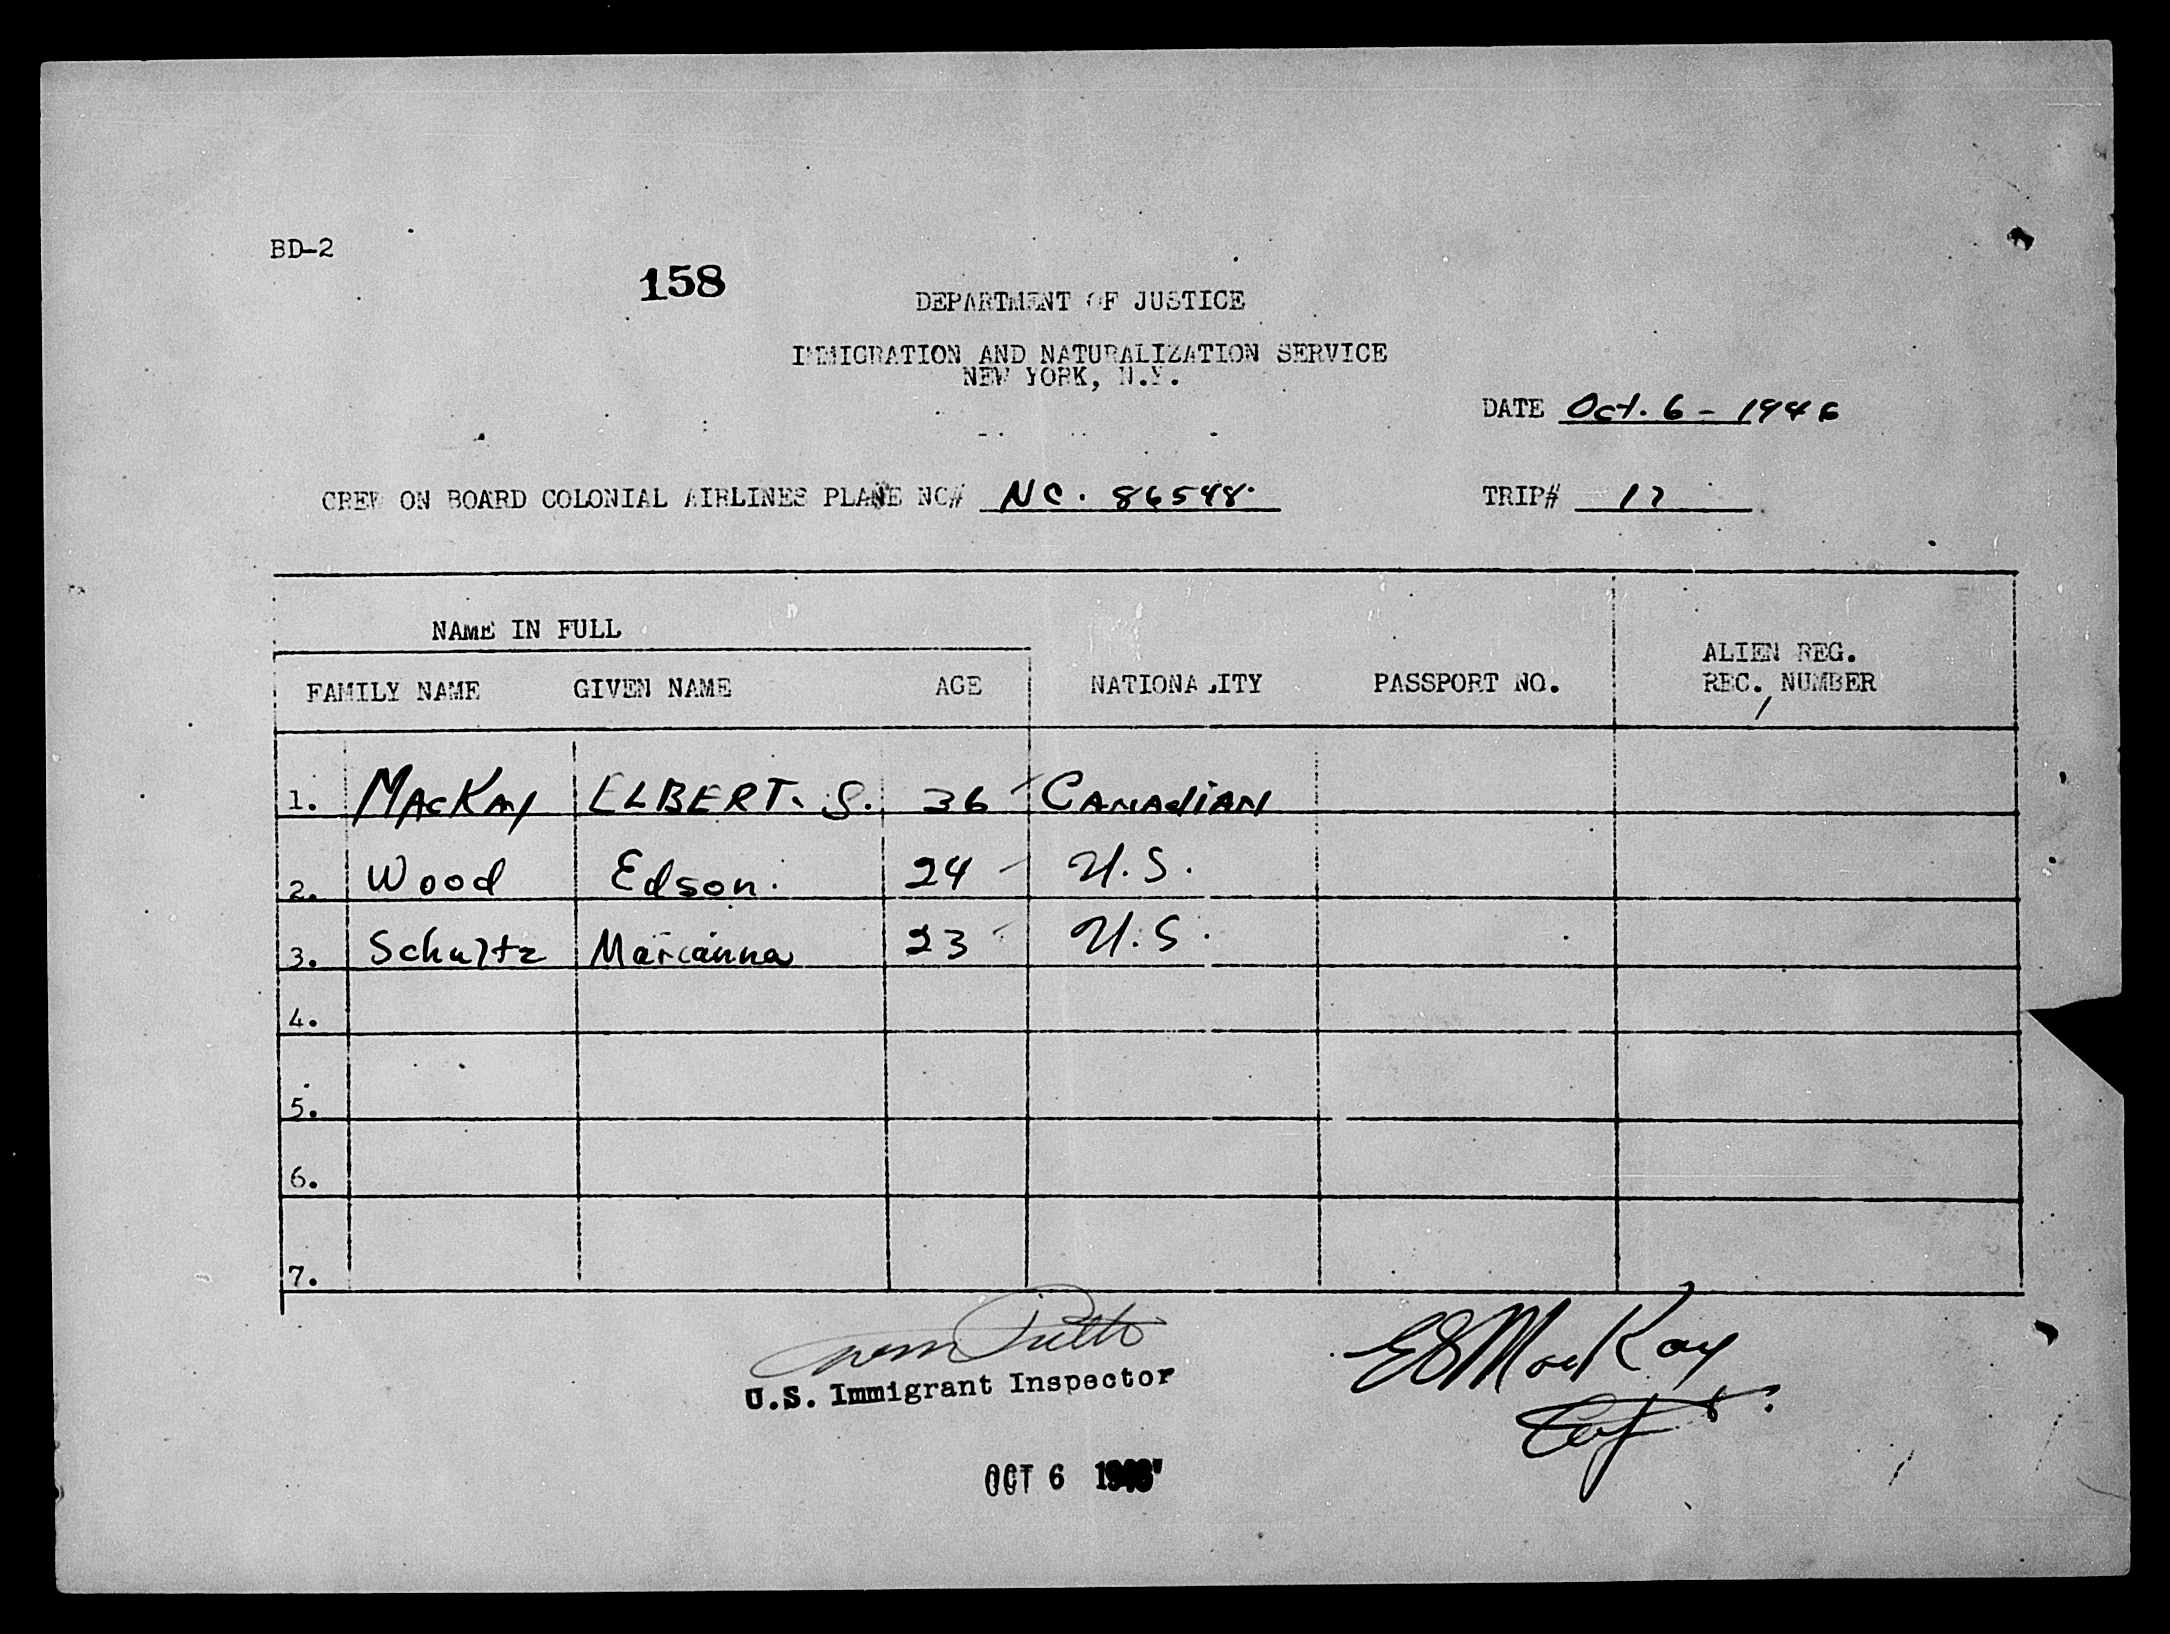 BD-2
158
DEPARTMENT OF JUSTICE
IMMIGRATION AND NATURALIZATION SERVICE
NEW YORK, N.Y.
DATE Oct. 6 - 1946
CREW ON BOARD COLONIAL AIRLINES PLANE NC# NC. 86548. TRIP# 17
NAME IN FULL
FAMILY NAME GIVEN NAME AGE NATIONALITY PASSPORT NO. ALIEN REG. REC. NUMBER
1. MacKay ELBERT. S. 36 Canadian
2. Wood Edson. 24 U.S.
3. Schultz Marianna 23 U.S.
4.
5.
6.
7.
U.S. Immigrant Inspector
ES MacKay
Capt.
OCT 6 1946